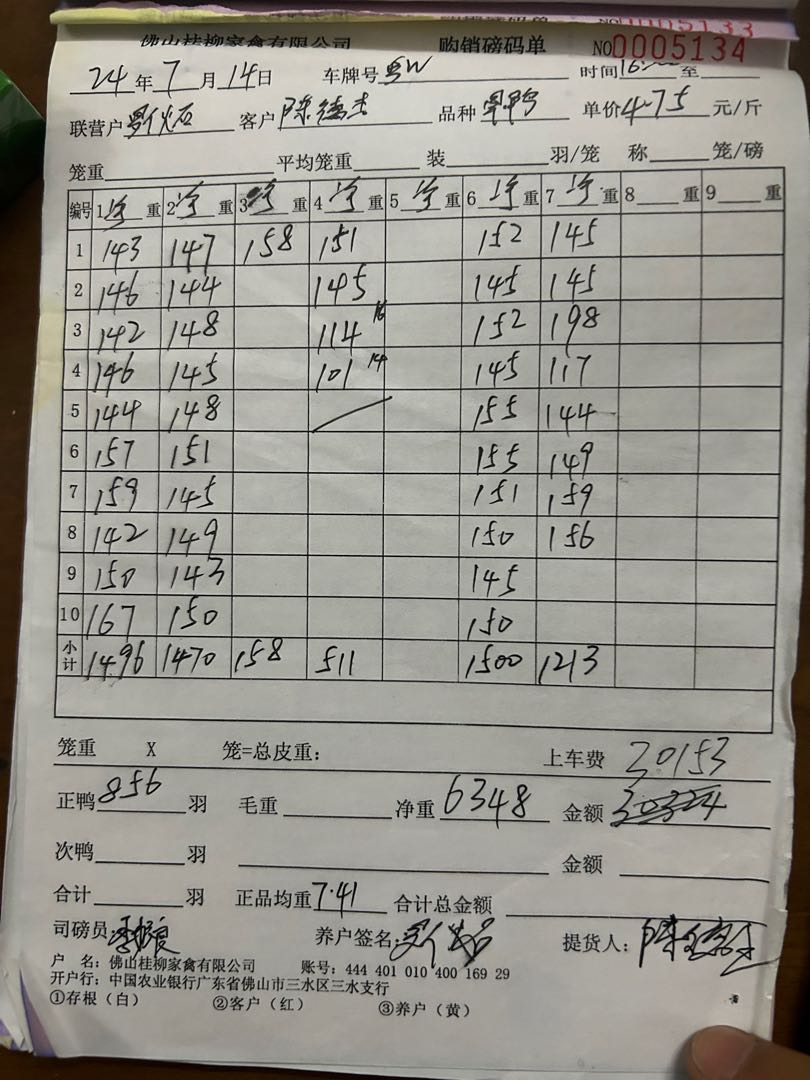 佛山桂柳家禽有限公司 购销磅码单 NO0005134
24年7月14日 车牌号 时间16: 至
联营户 客户陈德杰 品种 单价4.75元/斤
笼重 平均笼重 装 羽/笼 称 笼/磅
编号 1 重 2 重 3 重 4 重 5 重 6 重 7 重 8 重 9 重
1 143 147 158 151 152 145
2 146 144 145 145 145
3 142 148 114 16 152 198
4 146 145 101 14 145 117
5 144 148 155 144
6 157 151 155 149
7 159 145 151 159
8 142 149 150 156
9 150 143 145
10 167 150 150
小计 1496 1470 158 511 1500 1213
笼重 X 笼=总皮重: 上车费 30153
正鸭856羽 毛重 净重6348 金额30324
次鸭 羽 金额
合计 羽 正品均重7.41 合计总金额
司磅员: 养户签名: 提货人:
户 名:佛山桂柳家禽有限公司 账号:444 401 010 400 169 29
开户行:中国农业银行广东省佛山市三水区三水支行
①存根(白) ②客户(红) ③养户(黄)